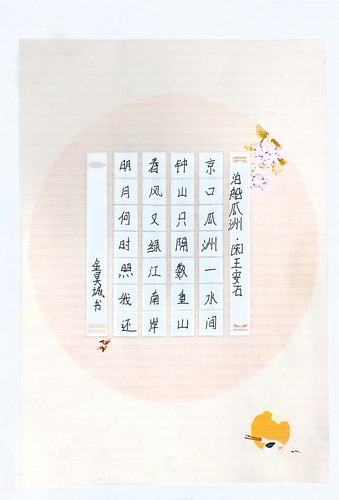 泊船瓜洲·宋王安石
京口瓜洲一水间
钟山只隔数重山
春风又绿江南岸
明月何时照我还
金昊城书